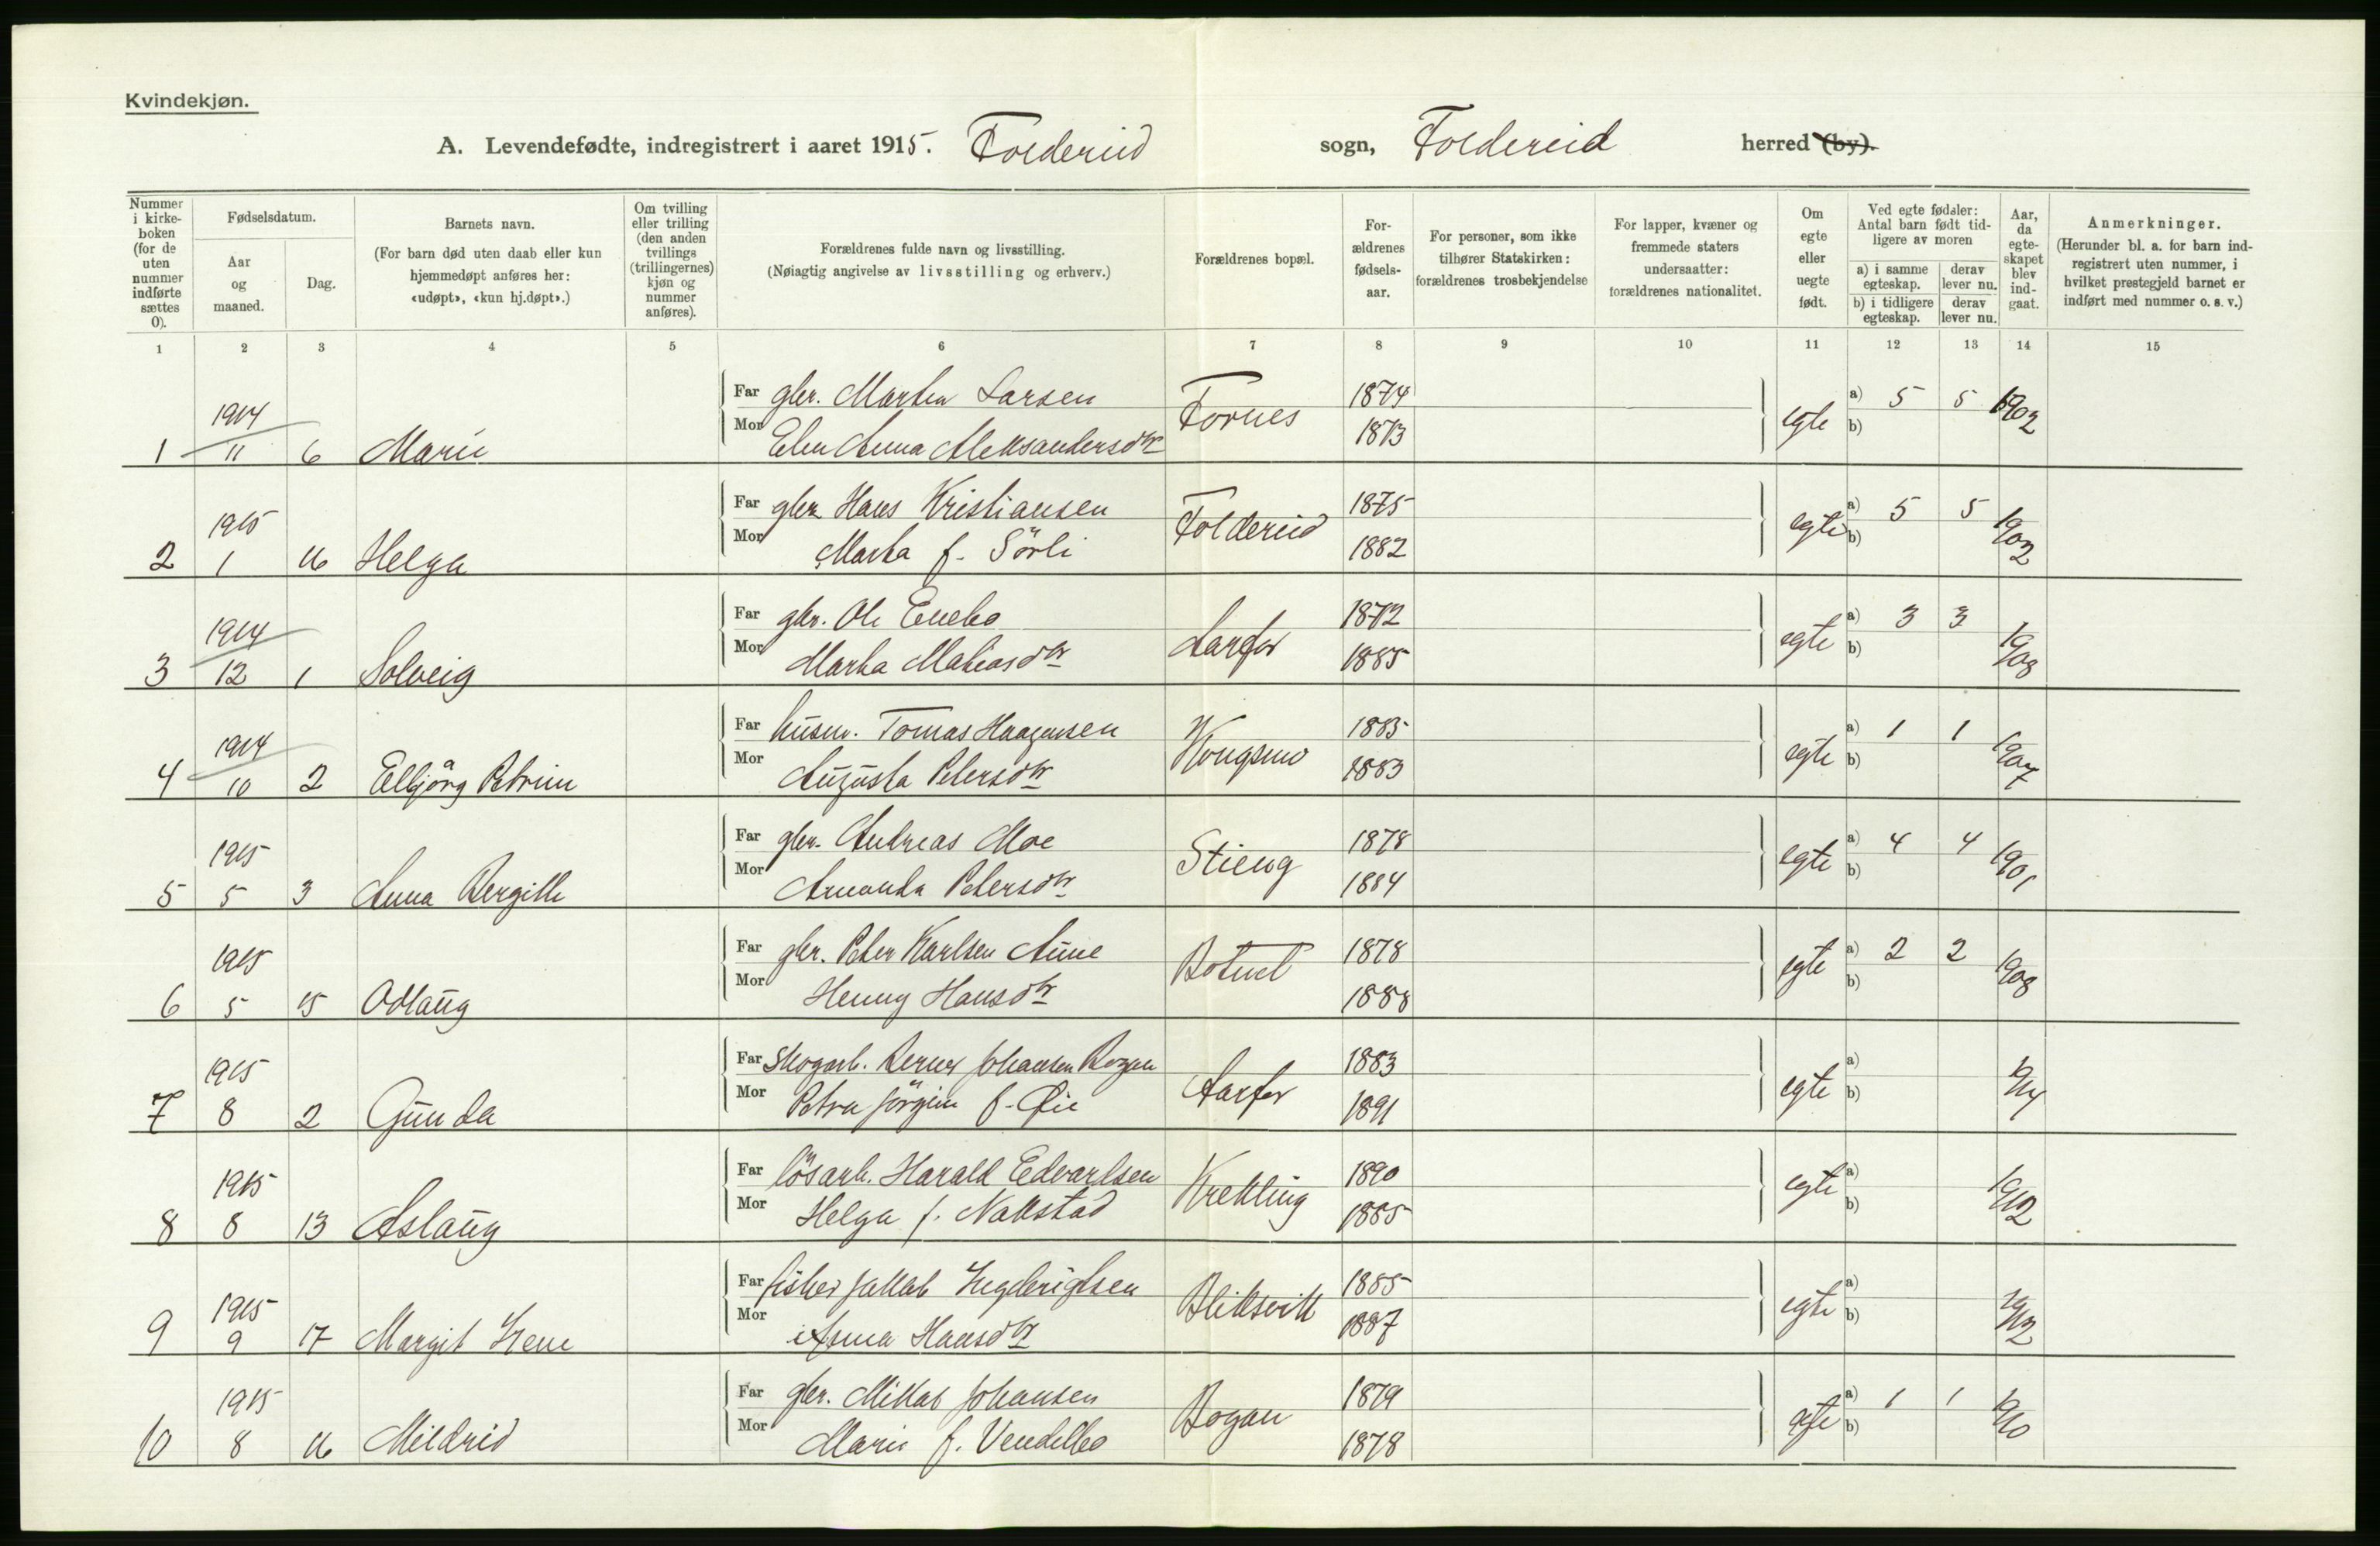 Kvindekjøn.
A. Levendefødte, indregistrert i aaret 1915. Foldereid sogn, Foldereid herred (by).
Nummer i kirkeboken (for de uten nummer indførte sættes 0).
Fødselsdatum.
Aar og maaned.
Dag.
Barnets navn.
(For barn død uten daab eller kun hjemmedøpt anføres her: «udøpt», «kun hj.døpt».)
Om tvilling eller trilling (den anden tvillings (trillingernes) kjøn og nummer anføres).
Forældrenes fulde navn og livsstilling.
(Nøiagtig angivelse av livsstilling og erhverv.)
Forældrenes bopæl.
Forældrenes fødselsaar.
For personer, som ikke tilhører Statskirken: forældrenes trosbekjendelse
For lapper, kvæner og fremmede staters undersaatter: forældrenes nationalitet.
Om egte eller uegte født.
Ved egte fødsler: Antal barn født tidligere av moren
a) i samme egteskap.
derav lever nu.
b) i tidligere egteskap.
derav lever nu.
Aar, da egteskapet blev indgaat.
Anmerkninger.
(Herunder bl. a. for barn indregistrert uten nummer, i hvilket prestegjeld barnet er indført med nummer o. s. v.)
1 2 3 4 5 6 7 8 9 10 11 12 13 14 15
1914 Far gbr. Martin Larsen Fornes 1874 egte a) 5 5 1902
1 11 6 Marie Mor Elen Anna Aleksandersdtr 1873 b)
1915 Far gbr. Hans Kristiansen Foldereid 1875 egte a) 5 5 1902
2 1 16 Helga Mor Marta f. Sörli 1882 b)
1914 Far gbr. Ole Enebo Aarfor 1872 egte a) 3 3 1908
3 12 1 Solveig Mor Marta Matiasdtr 1885 b)
1914 Far husm. Tomas Haagensen Kongsmo 1885 egte a) 1 1 1907
4 10 2 Elbjörg Petrine Mor Augusta Petersdtr 1883 b)
1915 Far gbr. Andreas Moe Stieng 1878 egte a) 4 4 1901
5 5 3 Anna Bergitte Mor Amanda Petersdtr 1884 b)
1915 Far gbr. Peter Karlsen Aune Botnet 1878 egte a) 2 2 1908
6 5 15 Odlaug Mor Henny Hansdtr 1888 b)
1915 Far skogarb. Berner Johansen Rogan Aarfor 1883 egte a) 1914
7 8 2 Gunda Mor Petra Jörgine f. Öie 1891 b)
1915 Far lösarb. Harald Edvardsen Krekling 1890 egte a) 1912
8 8 13 Aslaug Mor Helga f. Nakstad 1885 b)
1915 Far fisker Jakob Ingebrigtsen Bliksvik 1885 egte a) 1912
9 9 17 Margit Irene Mor Anna Hansdtr 1887 b)
1915 Far gbr. Mikal Johansen Rogan 1879 egte a) 1 1 1910
10 8 16 Mildrid Mor Marie f. Vendelbo 1878 b)